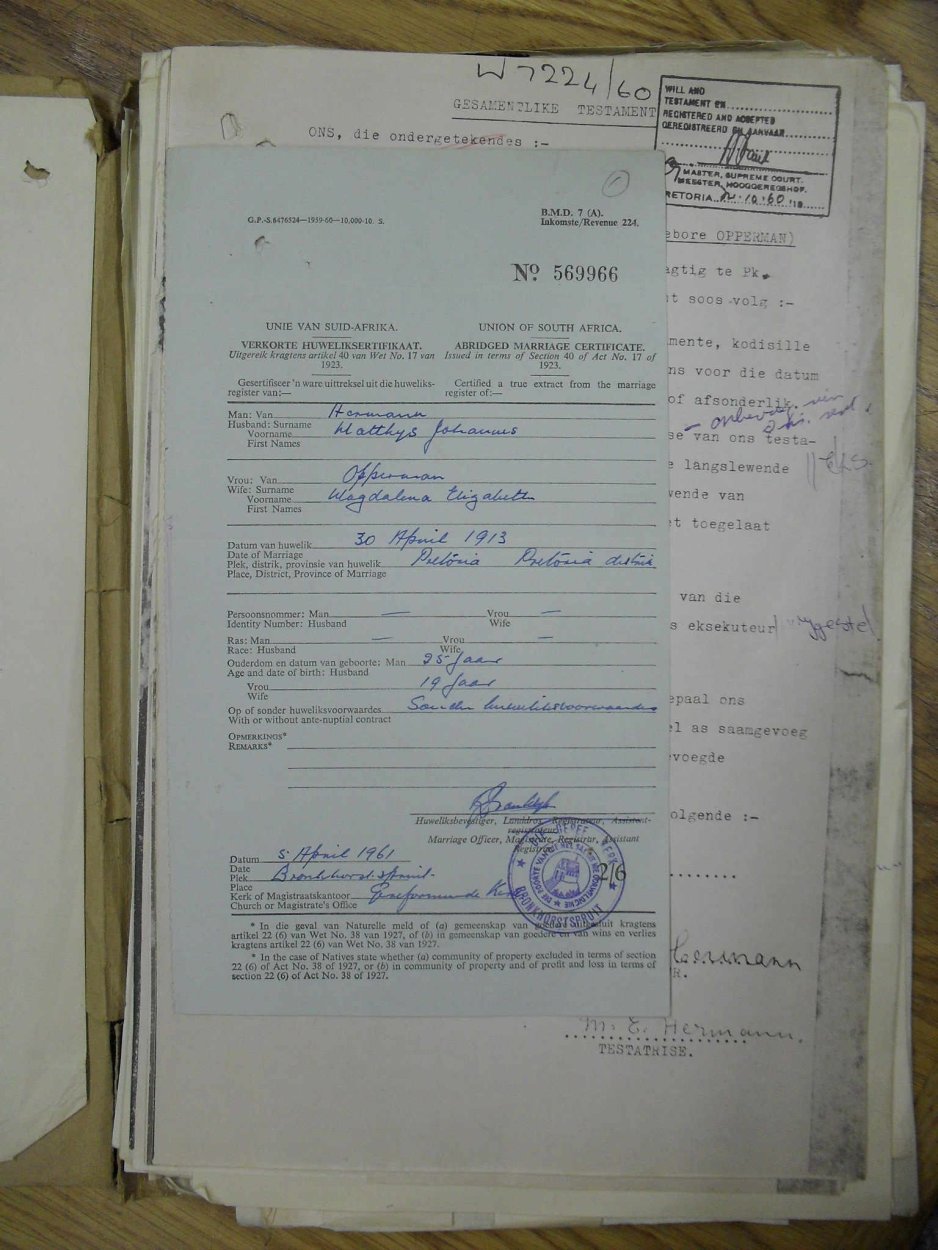 W 7224/60
GESAMENTLIKE TESTAMENT
ONS, die ondergetekendes :-
WILL AND
TESTAMENT EN
REGISTERED AND ACCEPTED
GEREGISTREERD EN AANVAAR
MASTER, SUPREME COURT.
MEESTER, HOOGGEREGSHOF.
RETORIA 10·60
ebore OPPERMAN)
agtig te Pk.
t soos volg :-
mente, kodisille
ns voor die datum
of afsonderlik.
se van ons testa-
e langslewende
wende van
et toegelaat
van die
s eksekuteur
epaal ons
el as saamgevoeg
voegde
olgende :-
Hermann
R.
M. E. Hermann.
TESTATRISE.
G.P.-S.6476524—1959-60—10,000-10. S.
B.M.D. 7 (A).
Inkomste/Revenue 224.
No 569966
UNIE VAN SUID-AFRIKA.
VERKORTE HUWELIKSERTIFIKAAT.
Uitgereik kragtens artikel 40 van Wet No. 17 van
1923.
Gesertifiseer 'n ware uittreksel uit die huweliks-
register van:—
UNION OF SOUTH AFRICA.
ABRIDGED MARRIAGE CERTIFICATE.
Issued in terms of Section 40 of Act No. 17 of
1923.
Certified a true extract from the marriage
register of:—
Man: Van Hermann
Husband: Surname
Voorname Matthys Johannes
First Names
Vrou: Van Opperman
Wife: Surname
Voorname Magdalena Elizabeth
First Names
Datum van huwelik 30 April 1913
Date of Marriage
Plek, distrik, provinsie van huwelik Pretoria Pretoria distrik
Place, District, Province of Marriage
Persoonsnommer: Man — Vrou —
Identity Number: Husband Wife
Ras: Man — Vrou —
Race: Husband Wife
Ouderdom en datum van geboorte: Man 25 Jaar
Age and date of birth: Husband
Vrou 19 Jaar
Wife
Op of sonder huweliksvoorwaardes Sonder huweliksvoorwaardes
With or without ante-nuptial contract
OPMERKINGS*
REMARKS*
Huweliksbevestiger, Landdros, Registrateur, Assistent-
registrateur
Marriage Officer, Magistrate, Registrar, Assistant
Registrar
Datum 5 April 1961
Date
Plek Bronkhorstspruit
Place
Kerk of Magistraatskantoor Gereformeerde Kerk
Church or Magistrate's Office
BRONKHORSTSPRUIT
2/6
* In die geval van Naturelle meld of (a) gemeenskap van goedere uitgesluit kragtens
artikel 22 (6) van Wet No. 38 van 1927, of (b) in gemeenskap van goedere en van wins en verlies
kragtens artikel 22 (6) van Wet No. 38 van 1927.
* In the case of Natives state whether (a) community of property excluded in terms of section
22 (6) of Act No. 38 of 1927, or (b) in community of property and of profit and loss in terms of
section 22 (6) of Act No. 38 of 1927.